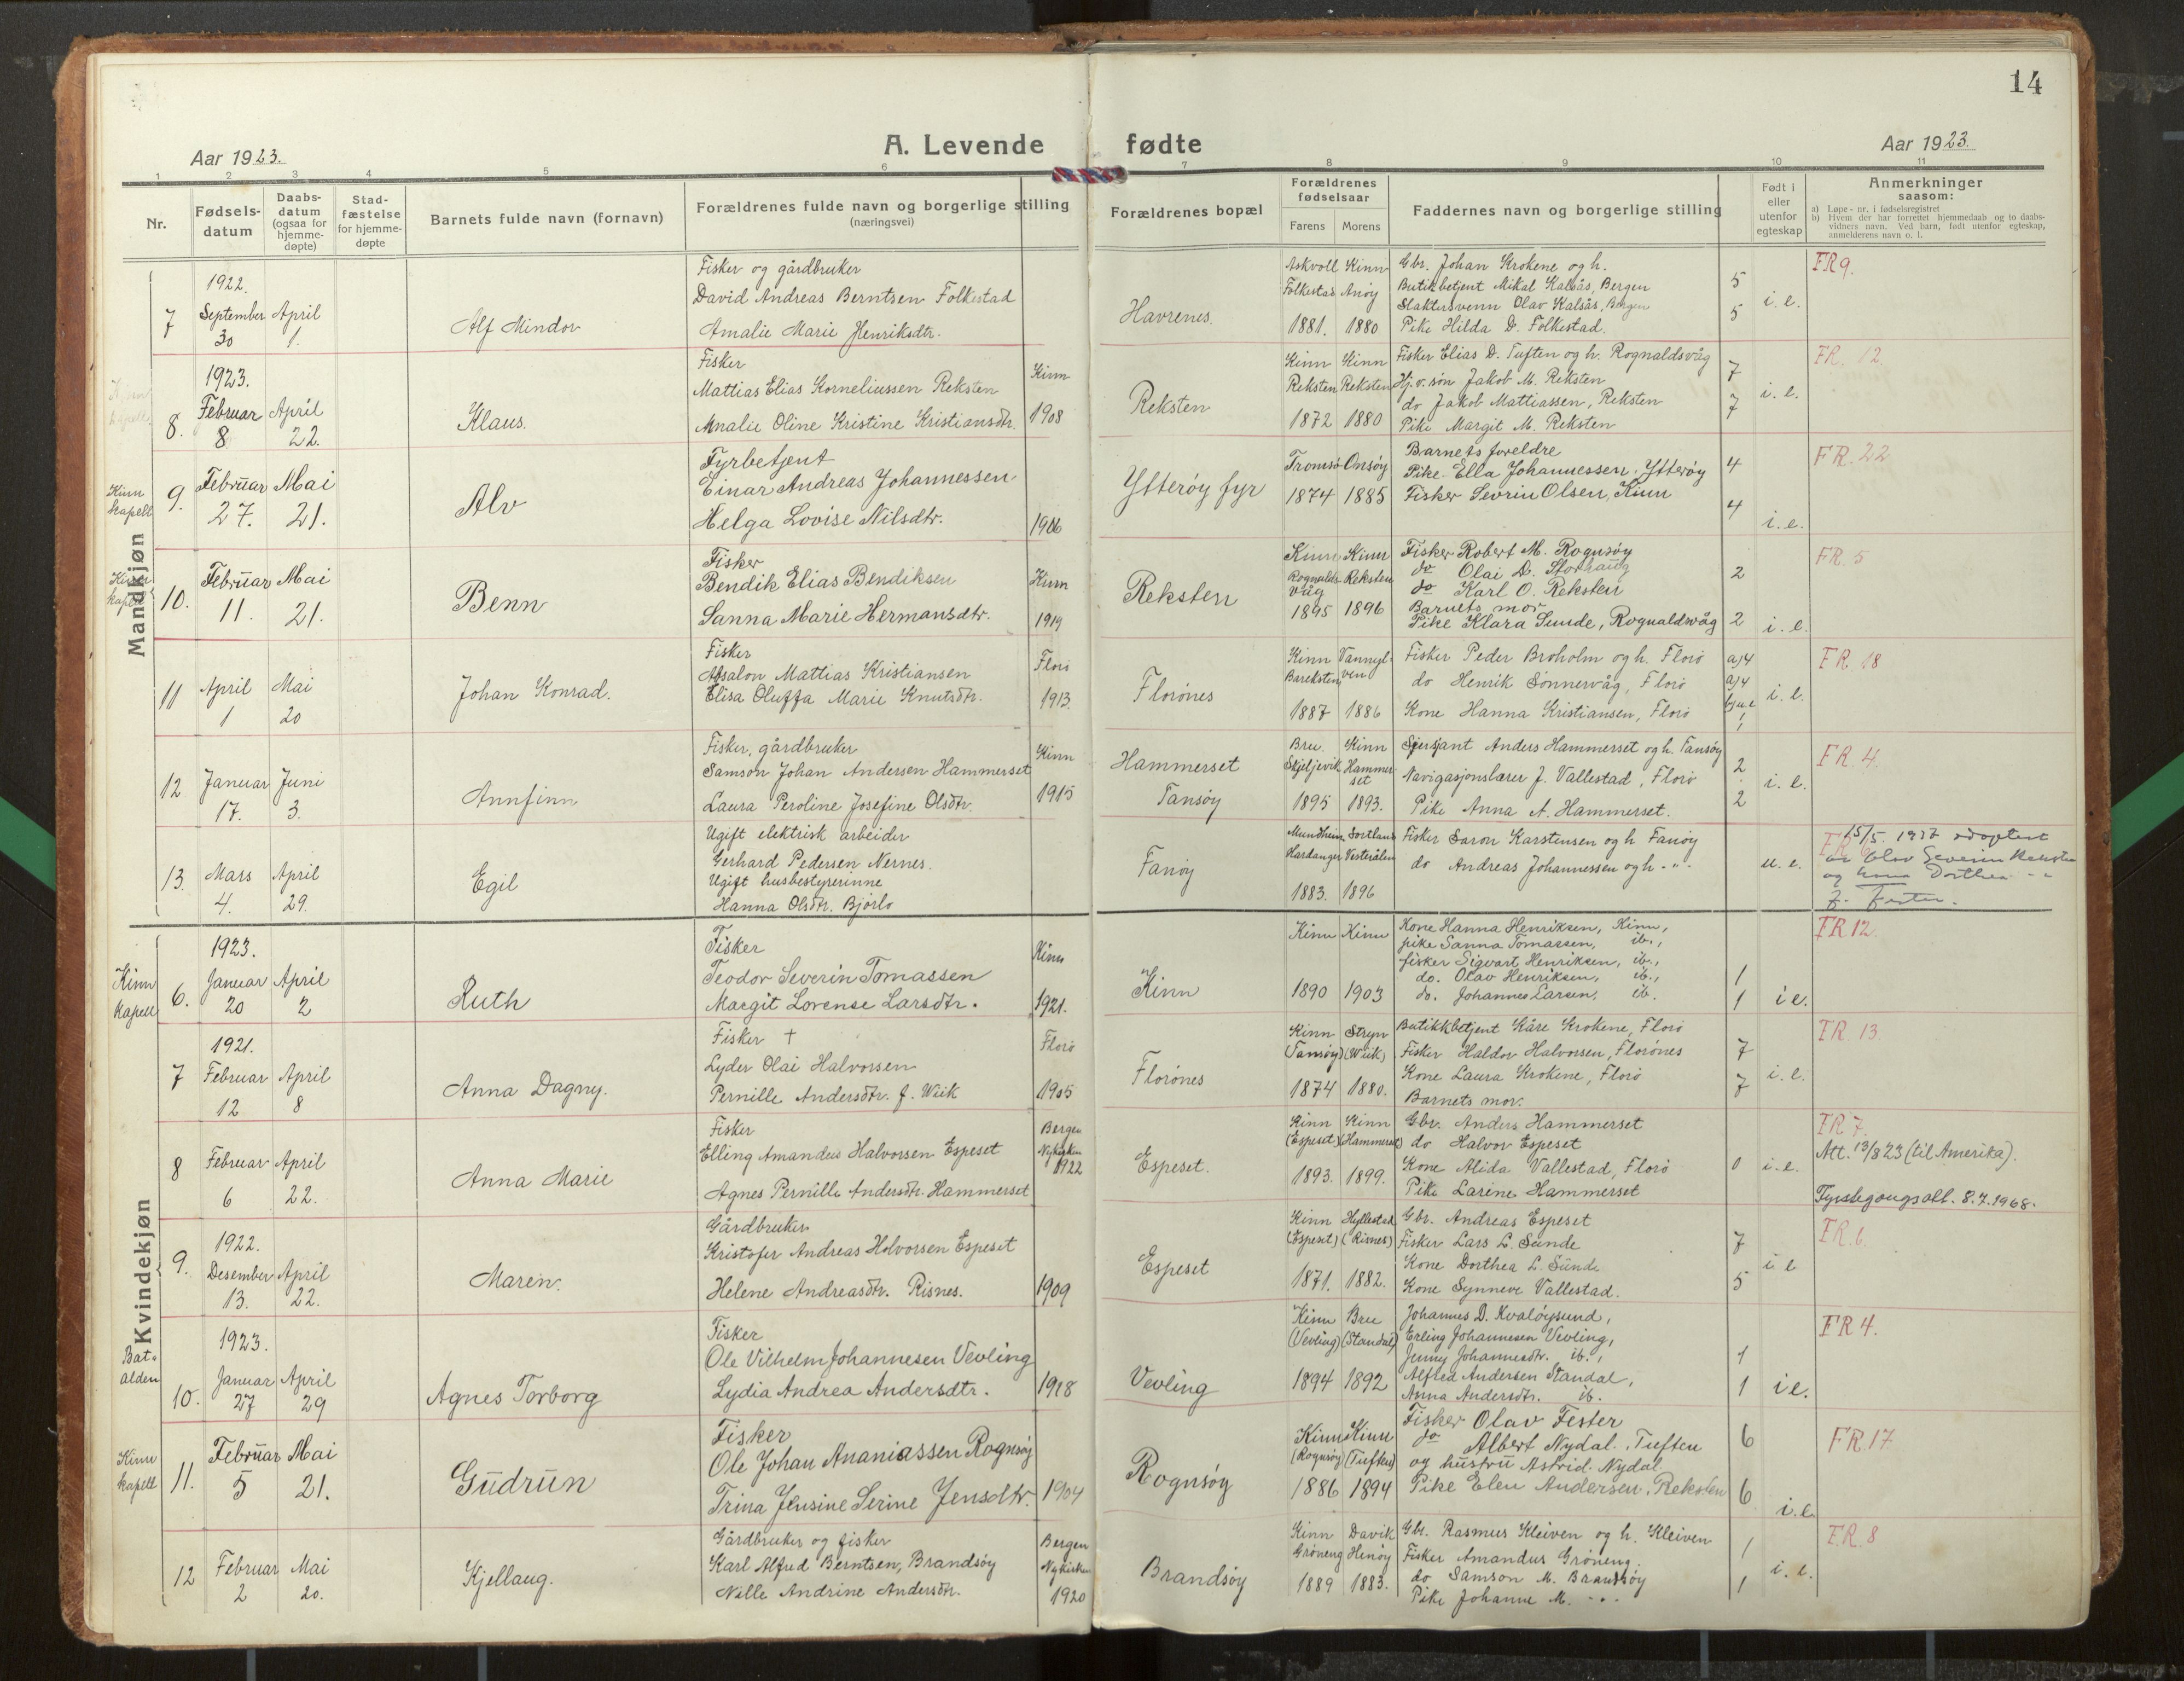 14
A. Levende fødte
Aar 1923.
Aar 1923.
1 2 3 4 5 6 7 8 9 10 11
Nr.
Fødselsdatum
Daabsdatum (ogsaa for hjemmedøpte)
Stadfæstelse for hjemmedøpte
Barnets fulde navn (fornavn)
Forældrenes fulde navn og borgerlige stilling
(næringsvei)
Forældrenes bopæl
Forældrenes fødselsaar
Farens Morens
Faddernes navn og borgerlige stilling
Født i eller utenfor egteskap
Anmerkninger saasom:
a) Løpe-nr. i fødselsregistret
b) Hvem der har forrettet hjemmedaab og to daabsvidners navn. Ved barn, født utenfor egteskap, anmelderens navn o. l.
Mandkjøn
7
1922.
September April
30 1.
Alf Mindor
Fisker og gårdbruker
David Andreas Berntsen Folkestad
Amalie Marie Henriksdtr.
Havrenes.
Askvoll Kinn
Folkestad Anøy
1881. 1880
Gbr. Johan Krokene og h.
Butikbetjent Mikal Kalsås, Bergen
Slaktersvenn Olav Kalsås, Bergen
Pike Hilda D. Folkestad.
5
5
i. e.
FR 9.
8.
1923.
Februar April
8 22.
Klaus.
Fisker
Mattias Elias Korneliussen Reksten
Amalie Oline Kristine Kristiansdtr.
Kinn
1908
Reksten
Kinn Kinn
Reksten Reksten
1872 1880
Fisker Elias D. Tuften og h. Rognaldsvåg
Hj.v. søn Jakob M. Reksten
do Jakob Mattiassen, Reksten
Pike Margit M. Reksten
7
7
i. e.
FR. 12.
Kinn kapell
9.
Februar Mai
27. 21.
Alv
Fyrbetjent
Einar Andreas Johannessen
Helga Lovise Nilsdtr.
1906
Ytterøy fyr
Tromsö Onsöy
1874 1885
Barnets foreldre
Pike Ella Johannessen. Ytterøy
Fisker Sevrin Olsen, Kinn
4
4
i. e.
FR. 22
Kinn kapell
10.
Februar Mai
11. 21.
Benn
Fisker
Bendik Elias Bendiksen
Sanna Marie Hermansdtr.
Kinn
1919
Reksten
Kinn Kinn
Rognaldsvåg Reksten
1895 1896
Fisker Robert M. Rognsøy
do Olai D. Storhaug
do Karl O. Reksten
Barnets mor
Pike Klara Sunde, Rognaldsvåg
2
2
i. e.
FR. 5
11
April Mai
1 20
Johan Konrad.
Fisker
Absalon Mattias Kristiansen
Elisa Oluffa Marie Knutsdtr.
Florö
1913.
Florönes
Kinn Vannylven
Bareksten
1887 1886
Fisker Peder Broholm og h. Florö
do Henrik Sönnervåg, Florö
Kone Hanna Kristiansen, Florö
a) 4
a) 4
i. e.
FR. 18
12
Januar Juni
17. 3.
Annfinn
Fisker, gårdbruker
Samson Johan Andersen Hammerset
Laura Peroline Josefine Olsdtr.
Kinn
1915
Hammerset
Tansøy
Bru. Kinn
Skjeljevik Hammerset
1895 1893.
Sersjant Anders Hammerset og h. Tansøy
Navigasjonslærer J. Vallestad, Florö
Pike Anna A. Hammerset.
2
2
i. e.
FR. 4.
13.
Mars April
4. 29.
Egil
Ugift elektrisk arbeider
Gerhard Pedersen Nernes.
Ugift husbestyrerinne
Hanna Olsdtr. Bjørlo
Fanöy
Mundheim Sortland
Hardanger Vesterålen
1883. 1896
Fisker Saron Karstensen og h Fanöy
do Andreas Johannessen og h - " -
u. e.
15/5. 1937 adoptert
av Olav Severin Reksten
og kona Dorthea - "
f. Fester.
Kvindekjøn
Kinn kapell
6.
1923.
Januar April
20 2
Ruth
Fisker
Teodor Severin Tomassen
Margit Lovense Larsdtr.
Kinn
1921.
Kinn
Kinn Kinn
1890 1903
Kone Hanna Henriksen, Kinn,
pike Sanna Tomassen, ib.,
fisker Sigvart Henriksen, ib.,
do. Olav Henriksen, ib.,
do. Johannes Larsen, ib.
1
1
i e.
FR 12.
7
1921.
Februar April
12 8
Anna Dagny.
Fisker †
Lyder Olai Halvorsen
Pernille Andersdtr. f. Wiik
Florö
1905
Florönes
Kinn Stryn
(Tansöy) (Wiik)
1874 1880.
Butikkbetjent Kåre Krokene, Florö
Fisker Haldor Halvorsen, Florönes
Kone Laura Krokene, Florö
Barnets mor.
7
7
i. e.
FR. 13.
8
Februar April
6 22.
Anna Marie
Fisker
Elling Amandus Halvorsen Espeset
Agnes Pernille Andersdtr. Hammerset
Bergen
Nykirken
1922
Espeset.
Kinn Kinn
(Espeset) (Hammerset)
1893. 1899.
Gbr. Anders Hammerset
do Halvor Espeset
Kone Alida Vallestad, Florö
Pike Larine Hammerset
0
i. e.
FR 7.
Att. 13/8 23 (til Amerika).
Fyrstegongsatt. 8.7.1968.
9.
1922.
Desember April
13. 22.
Maren.
Gårdbruker
Kristofer Andreas Halvorsen Espeset
Helene Andreasdtr. Risnes.
1909
Espeset
Kinn Hyllestad
(Espeset) (Risnes)
1871. 1882.
Gbr. Andreas Espeset
Fisker Lars L. Sunde
Kone Dorthea L. Sunde
Kone Synneve Vallestad.
7
5
i e
FR. 6.
Batalden
10.
1923.
Januar April
27 29
Agnes Torborg
Fisker
Ole Vilhelm Johannesen Vevling
Lydia Andrea Andersdtr.
1918
Vevling
Kinn Bru
(Vevling) (Standal)
1894 1892
Johannes D. Kvalöysund,
Erling Johannesen Vevling,
Jenny Johannesdtr. ib.,
Alfred Andersen Standal,
Anna Andersdtr. ib.
1
1
i e.
FR 4.
Kinn kapell
11.
Februar Mai
5 21.
Gudrun
Fisker
Ole Johan Ananiassen Rognsøy
Trina Jensine Serine Jensdtr.
1904
Rognsøy
Kinn Kinn
(Rognsøy) (Tuften)
1886 1894
Fisker Olav Fester
do Albert Nydal, Tuften
og hustru Astrid Nydal
Pike Elen Andersen, Reksten
6
6
i. e.
FR. 17
12
Februar Mai
2 20.
Kjellaug.
Gårdbruker og fisker
Karl Alfred Berntsen, Brandsöy
Nille Andrine Andersdtr.
Bergen
Nykirken
1920
Brandsöy
Kinn Davik
Gröneng Henöy
1889 1883.
Gbr. Rasmus Kleiven og h. Kleiven
Fisker Amandus Gröneng.
do Samson M. Brandsöy
Pike Johanne M. - " -
1
1
i. e.
FR. 8